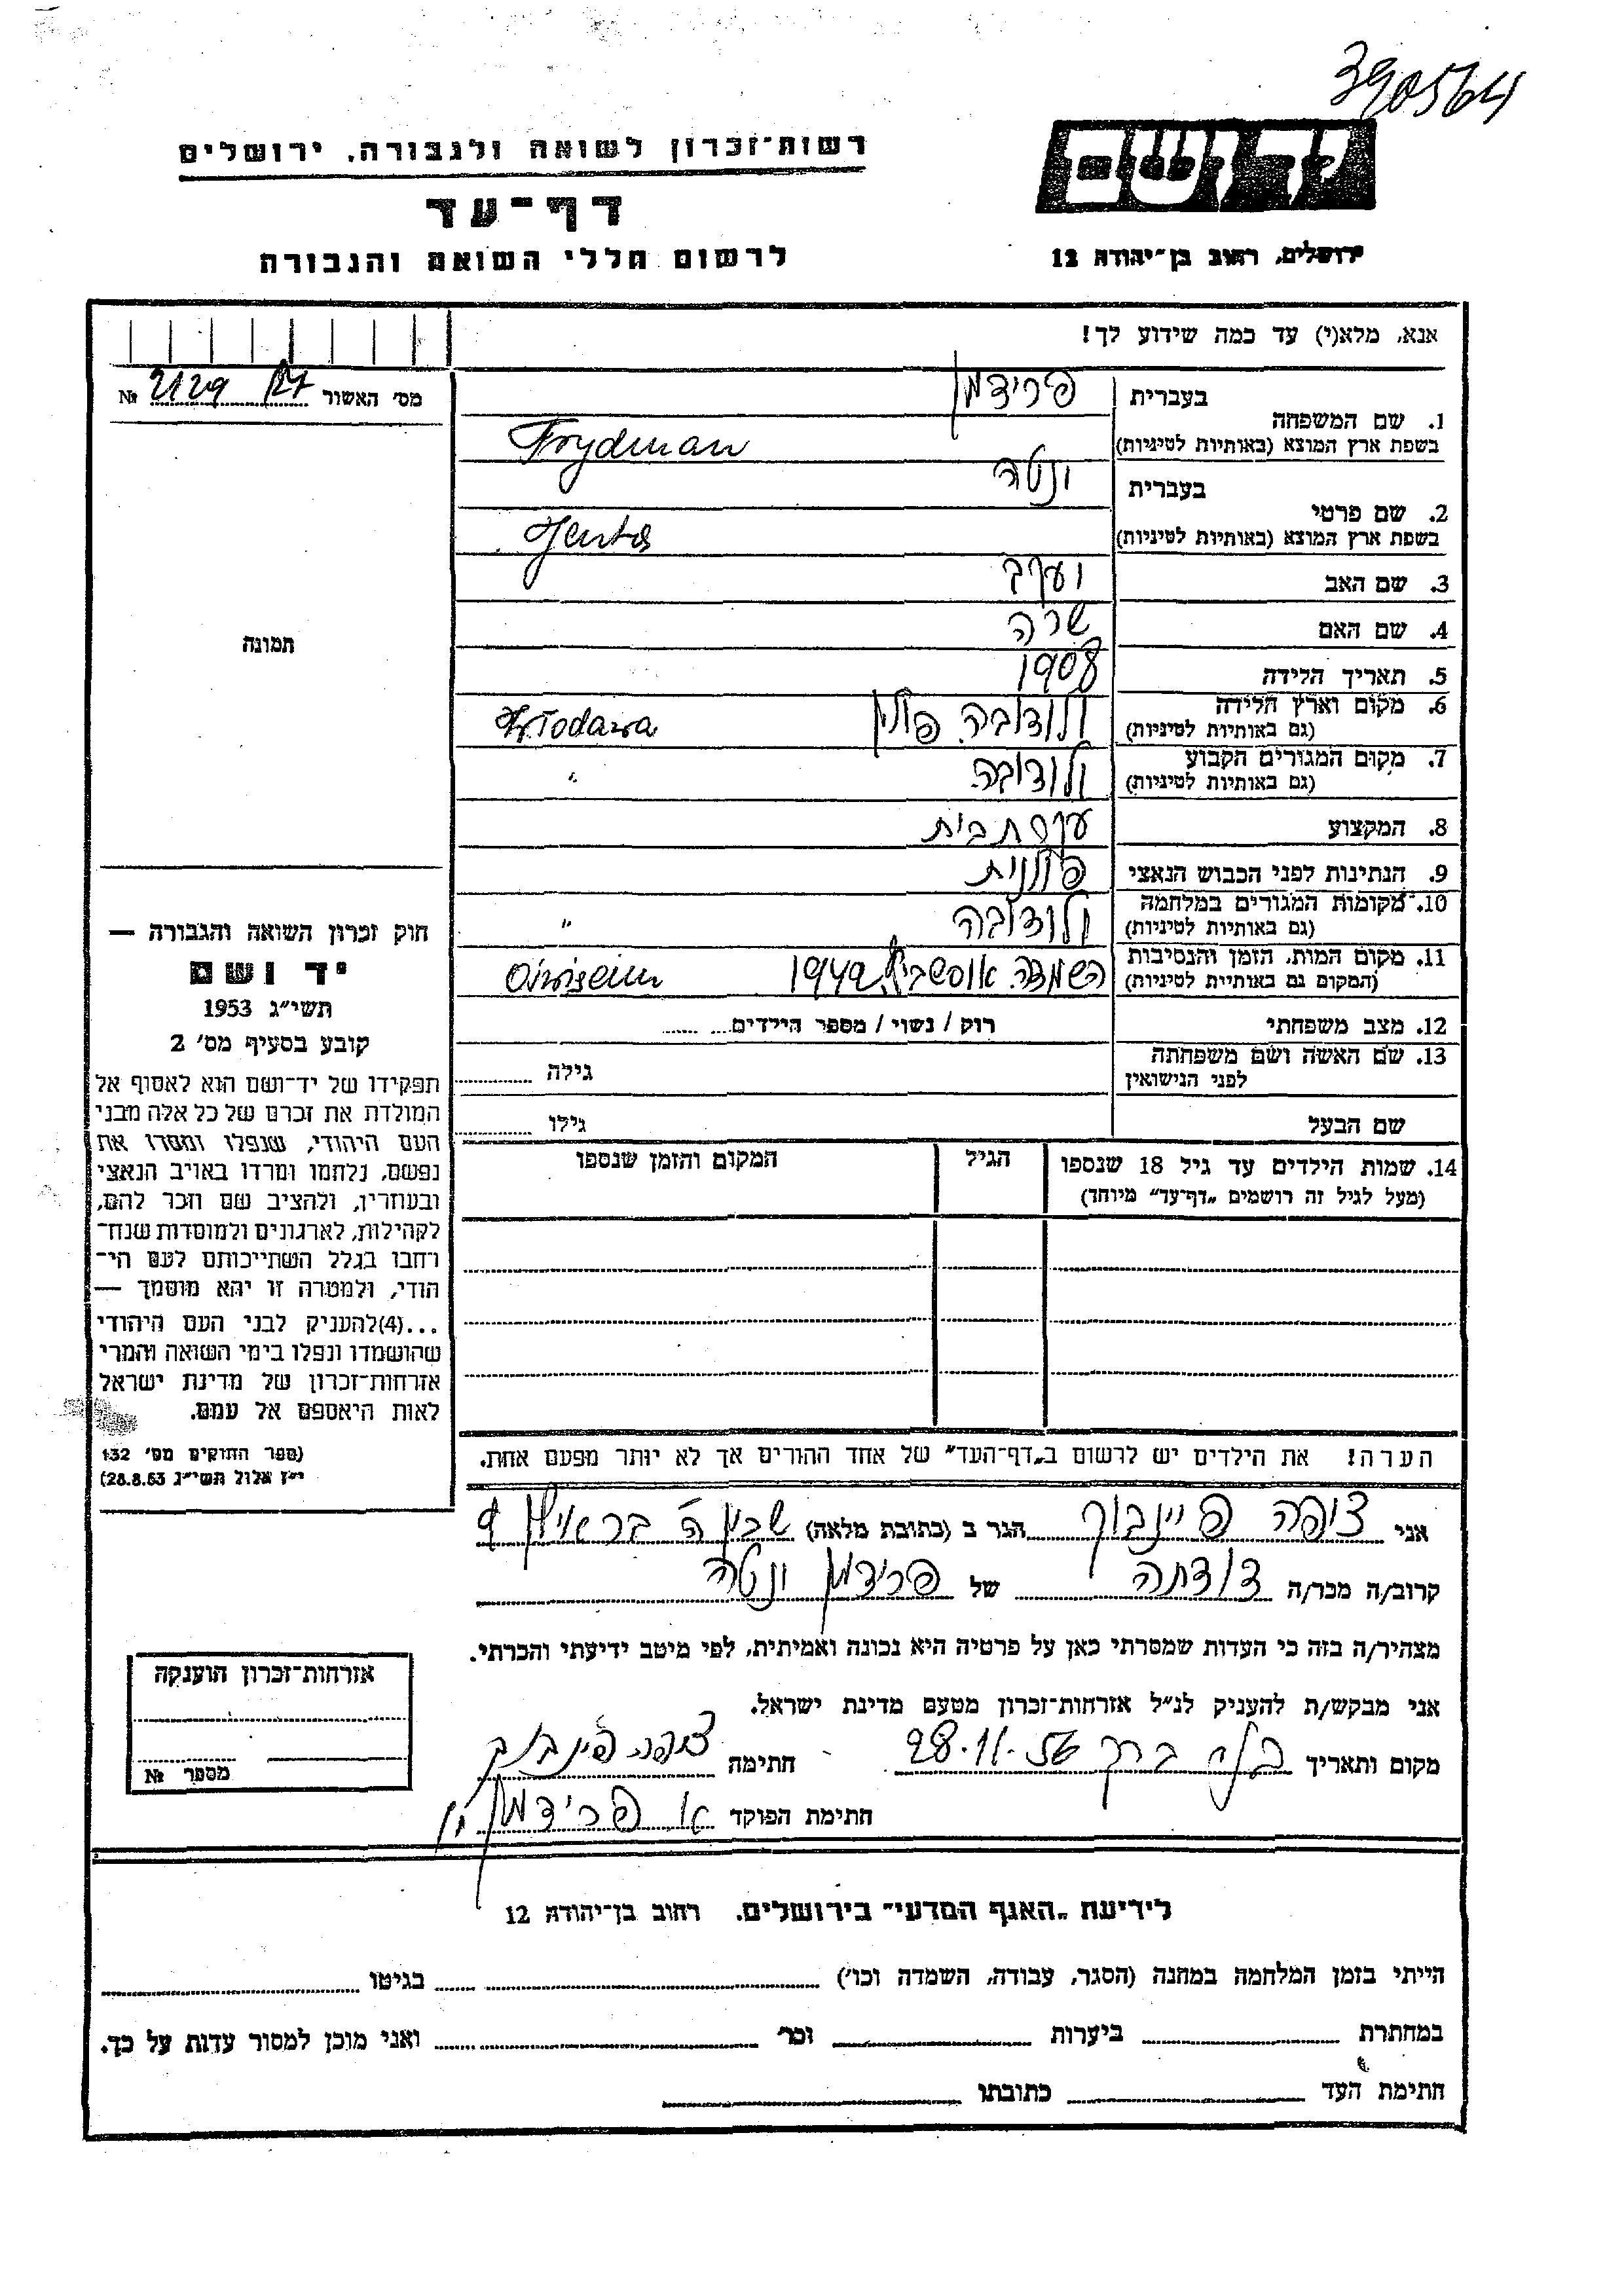 390564
רשות־זכרון לשואה ולגבורה, ירושלים
דף־עד
לרשום חללי השואה והגבורה
יד ושם
ירושלים, רחוב בן־יהודה 12
אנא, מלא(י) עד כמה שידוע לך!
מס׳ האשור 2129 127 №
תמונה
בעברית פרידמן
1. שם המשפחה
בשפת ארץ המוצא (באותיות לטיניות) Frydman
בעברית ינטה
2. שם פרטי
בשפת ארץ המוצא (באותיות לטיניות) Jenta
3. שם האב יעקב
4. שם האם שרה
5. תאריך הלידה 1908
6. מקום וארץ הלידה ולודובה פולין Włodawa
(גם באותיות לטיניות)
7. מקום המגורים הקבוע ולודובה "
(גם באותיות לטיניות)
8. המקצוע עקרת בית
9. הנתינות לפני הכבוש הנאצי פולנית
10. מקומות המגורים במלחמה ולודובה "
(גם באותיות לטיניות)
11. מקום המות, הזמן והנסיבות השמדה 1942
(המקום גם באותיית לטיניות)
12. מצב משפחתי רוק / נשוי / מספר הילדים
13. שם האשה ושם משפחתה גילה
לפני הנישואין
שם הבעל גילו
14. שמות הילדים עד גיל 18 שנספו הגיל המקום והזמן שנספו
(מעל לגיל זה רושמים „דף־עד״ מיוחד)
חוק זכרון השואה והגבורה —
יד ושם
תשי״ג 1953
קובע בסעיף מס׳ 2
תפקידו של יד־ושם הוא לאסוף אל
המולדת את זכרם של כל אלה מבני
העם היהודי, שנפלו ומסרו את
נפשם, נלחמו ומרדו באויב הנאצי
ובעוזריו, ולהציב שם וזכר להם,
לקהילות, לארגונים ולמוסדות שנח־
רחבו בגלל השתייכותם לעם הי־
הודי, ולמטרה זו יהא מוסמך —
...(4)להעניק לבני העם היהודי
שהושמדו ונפלו בימי השואה והמרי
אזרחות־זכרון של מדינת ישראל
לאות היאספם אל עמם.
(ספר החוקים מס׳ 132
י״ז אלול תשי״ג 28.8.53)
הערה! את הילדים יש לרשום ב„דף־העד״ של אחד ההורים אך לא יותר מפעם אחת.
אני ציפה פיינבוך הגר ב (כתובת מלאה)
קרוב/ה מכר/ה דודתה של פרידמן ינטה
מצהיר/ה בזה כי העדות שמסרתי כאן על פרטיה היא נכונה ואמיתית, לפי מיטב ידיעתי והכרתי.
אני מבקש/ת להעניק לנ״ל אזרחות־זכרון מטעם מדינת ישראל.
מקום ותאריך בני ברק 28.11.56 חתימה ציפה פיינבוך
חתימת הפוקד א פרידמן
אזרחות־זכרון הוענקה
מספר №
לידיעת „האגף המדעי״ בירושלים. רחוב בן־יהודה 12
הייתי בזמן המלחמה במחנה (הסגר, עבודה, השמדה וכו׳) בגיטו
במחתרת ביערות וכו׳ ואני מוכן למסור עדות על כך.
חתימת העד כתובתו